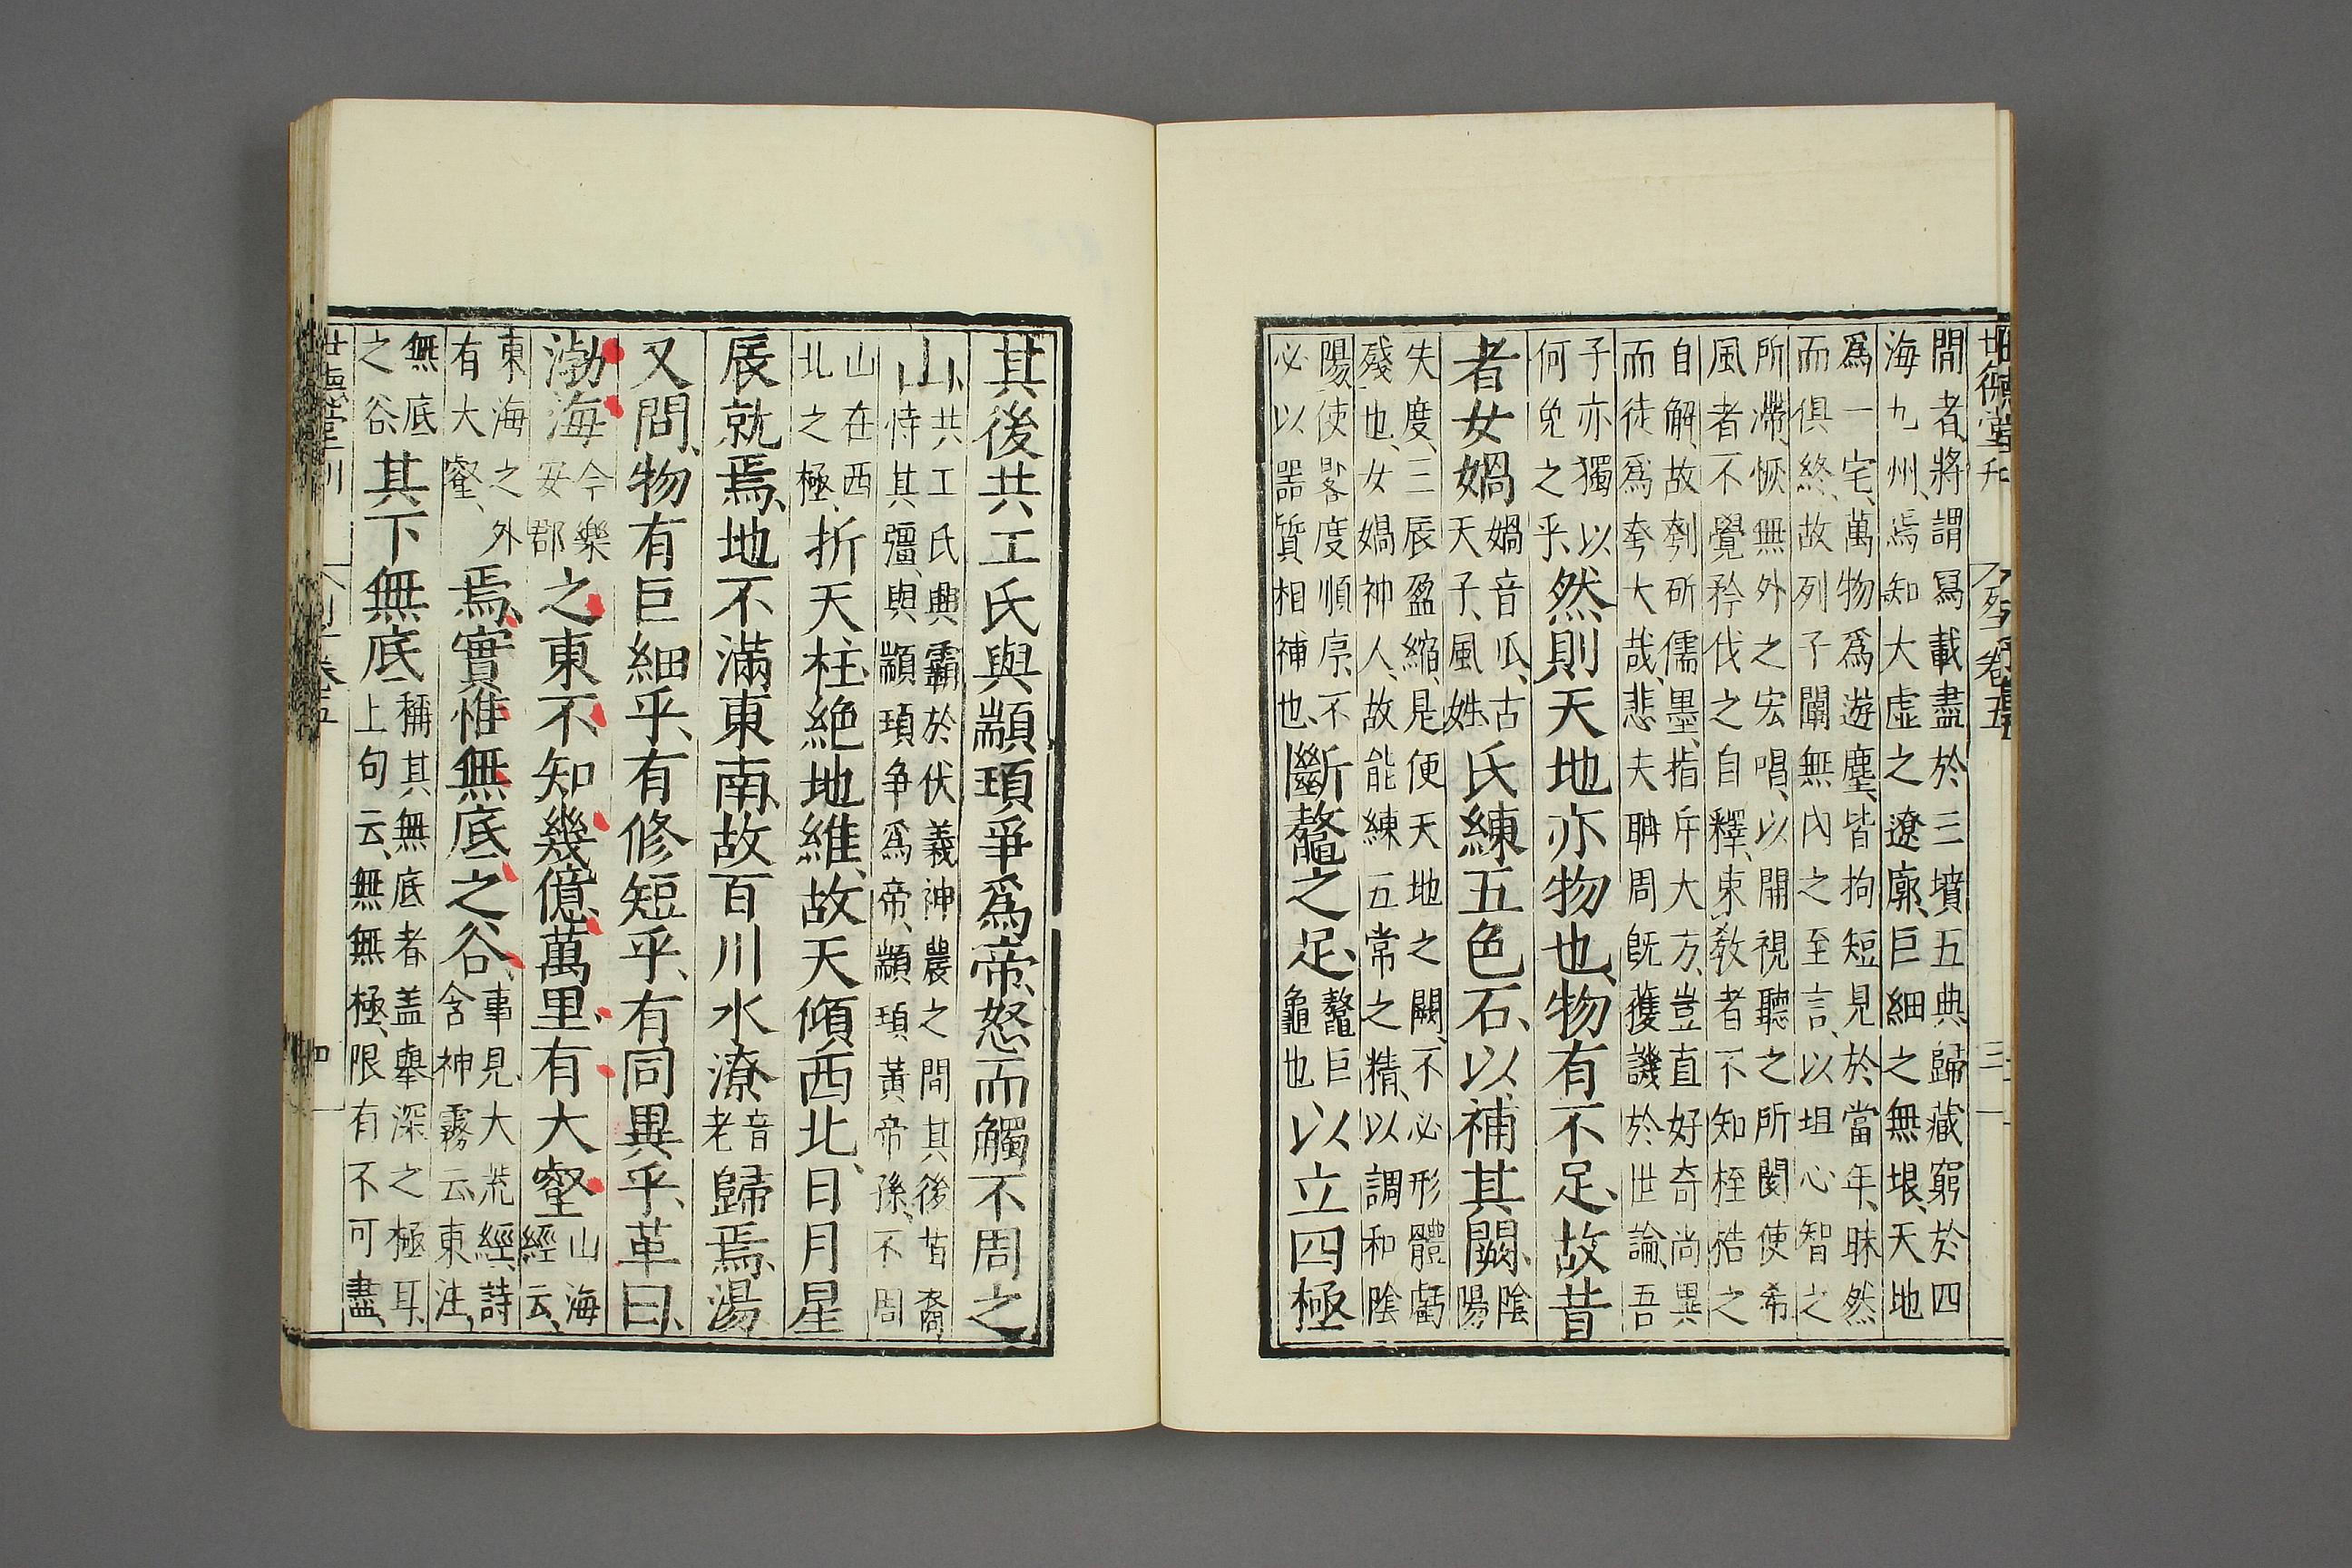 世德堂刊 列子卷五 三
聞者、將謂寫載盡於三墳五典、歸藏窮於四
海九州、焉知大虛之遼廓、巨細之無垠、天地
爲一宅、萬物爲遊塵、皆拘短見於當年、昧然
而俱終、故列子闡無内之至言、以坦心智之
所滯、恢無外之宏唱、以開視聽之所閡、使希
風者不覺矜伐之自釋、束敎者不知桎梏之
自解、故刳斫儒墨、指斥大方、豈直好奇尚異
而徒爲夸大哉、悲夫聃周旣獲譏於世論、吾
子亦獨以何免之乎、然則天地亦物也、物有不足、故昔
者女媧媧音瓜、古天子、風姓、氏練五色石、以補其闕、陰陽
失度、三辰盈縮、是使天地之闕、不必形體虧
殘也、女媧神人、故能練五常之精、以調和陰
陽使晷度順序、不必以器質相補也、斷鼇之足、鼇巨龜也以立四極
其後共工氏與顓頊爭爲帝、怒而觸不周之
山、共工氏興霸於伏羲神農之間其後苗裔恃其彊、與顓頊争爲帝、顓頊黃帝孫、不周
山在西北之極、折天柱、絕地維、故天傾西北、日月星
辰就焉、地不滿東南、故百川水潦音老歸焉、湯
又問、物有巨細乎、有修短乎、有同異乎、革曰、
渤海今樂安郡之東不知幾億萬里、有大壑山海經云、
東海之外有大壑、焉、實惟無底之谷、事見大荒經、詩含神霧云、東注
無底之谷其下無底、稱其無底者盖舉深之極耳、上句云、無無極限、有不可盡、
世德堂刊 列子卷五 四